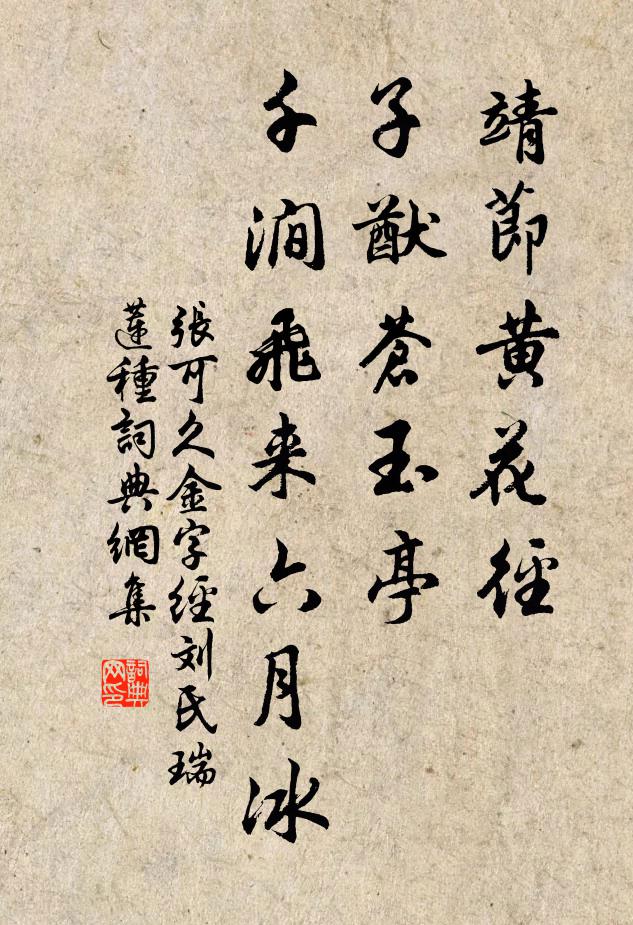 靖節黄花徑
子猷蒼玉亭
千澗飛来六月冰
張可久金字經刘氏瑞
蓮種詞典網集
詞典网印